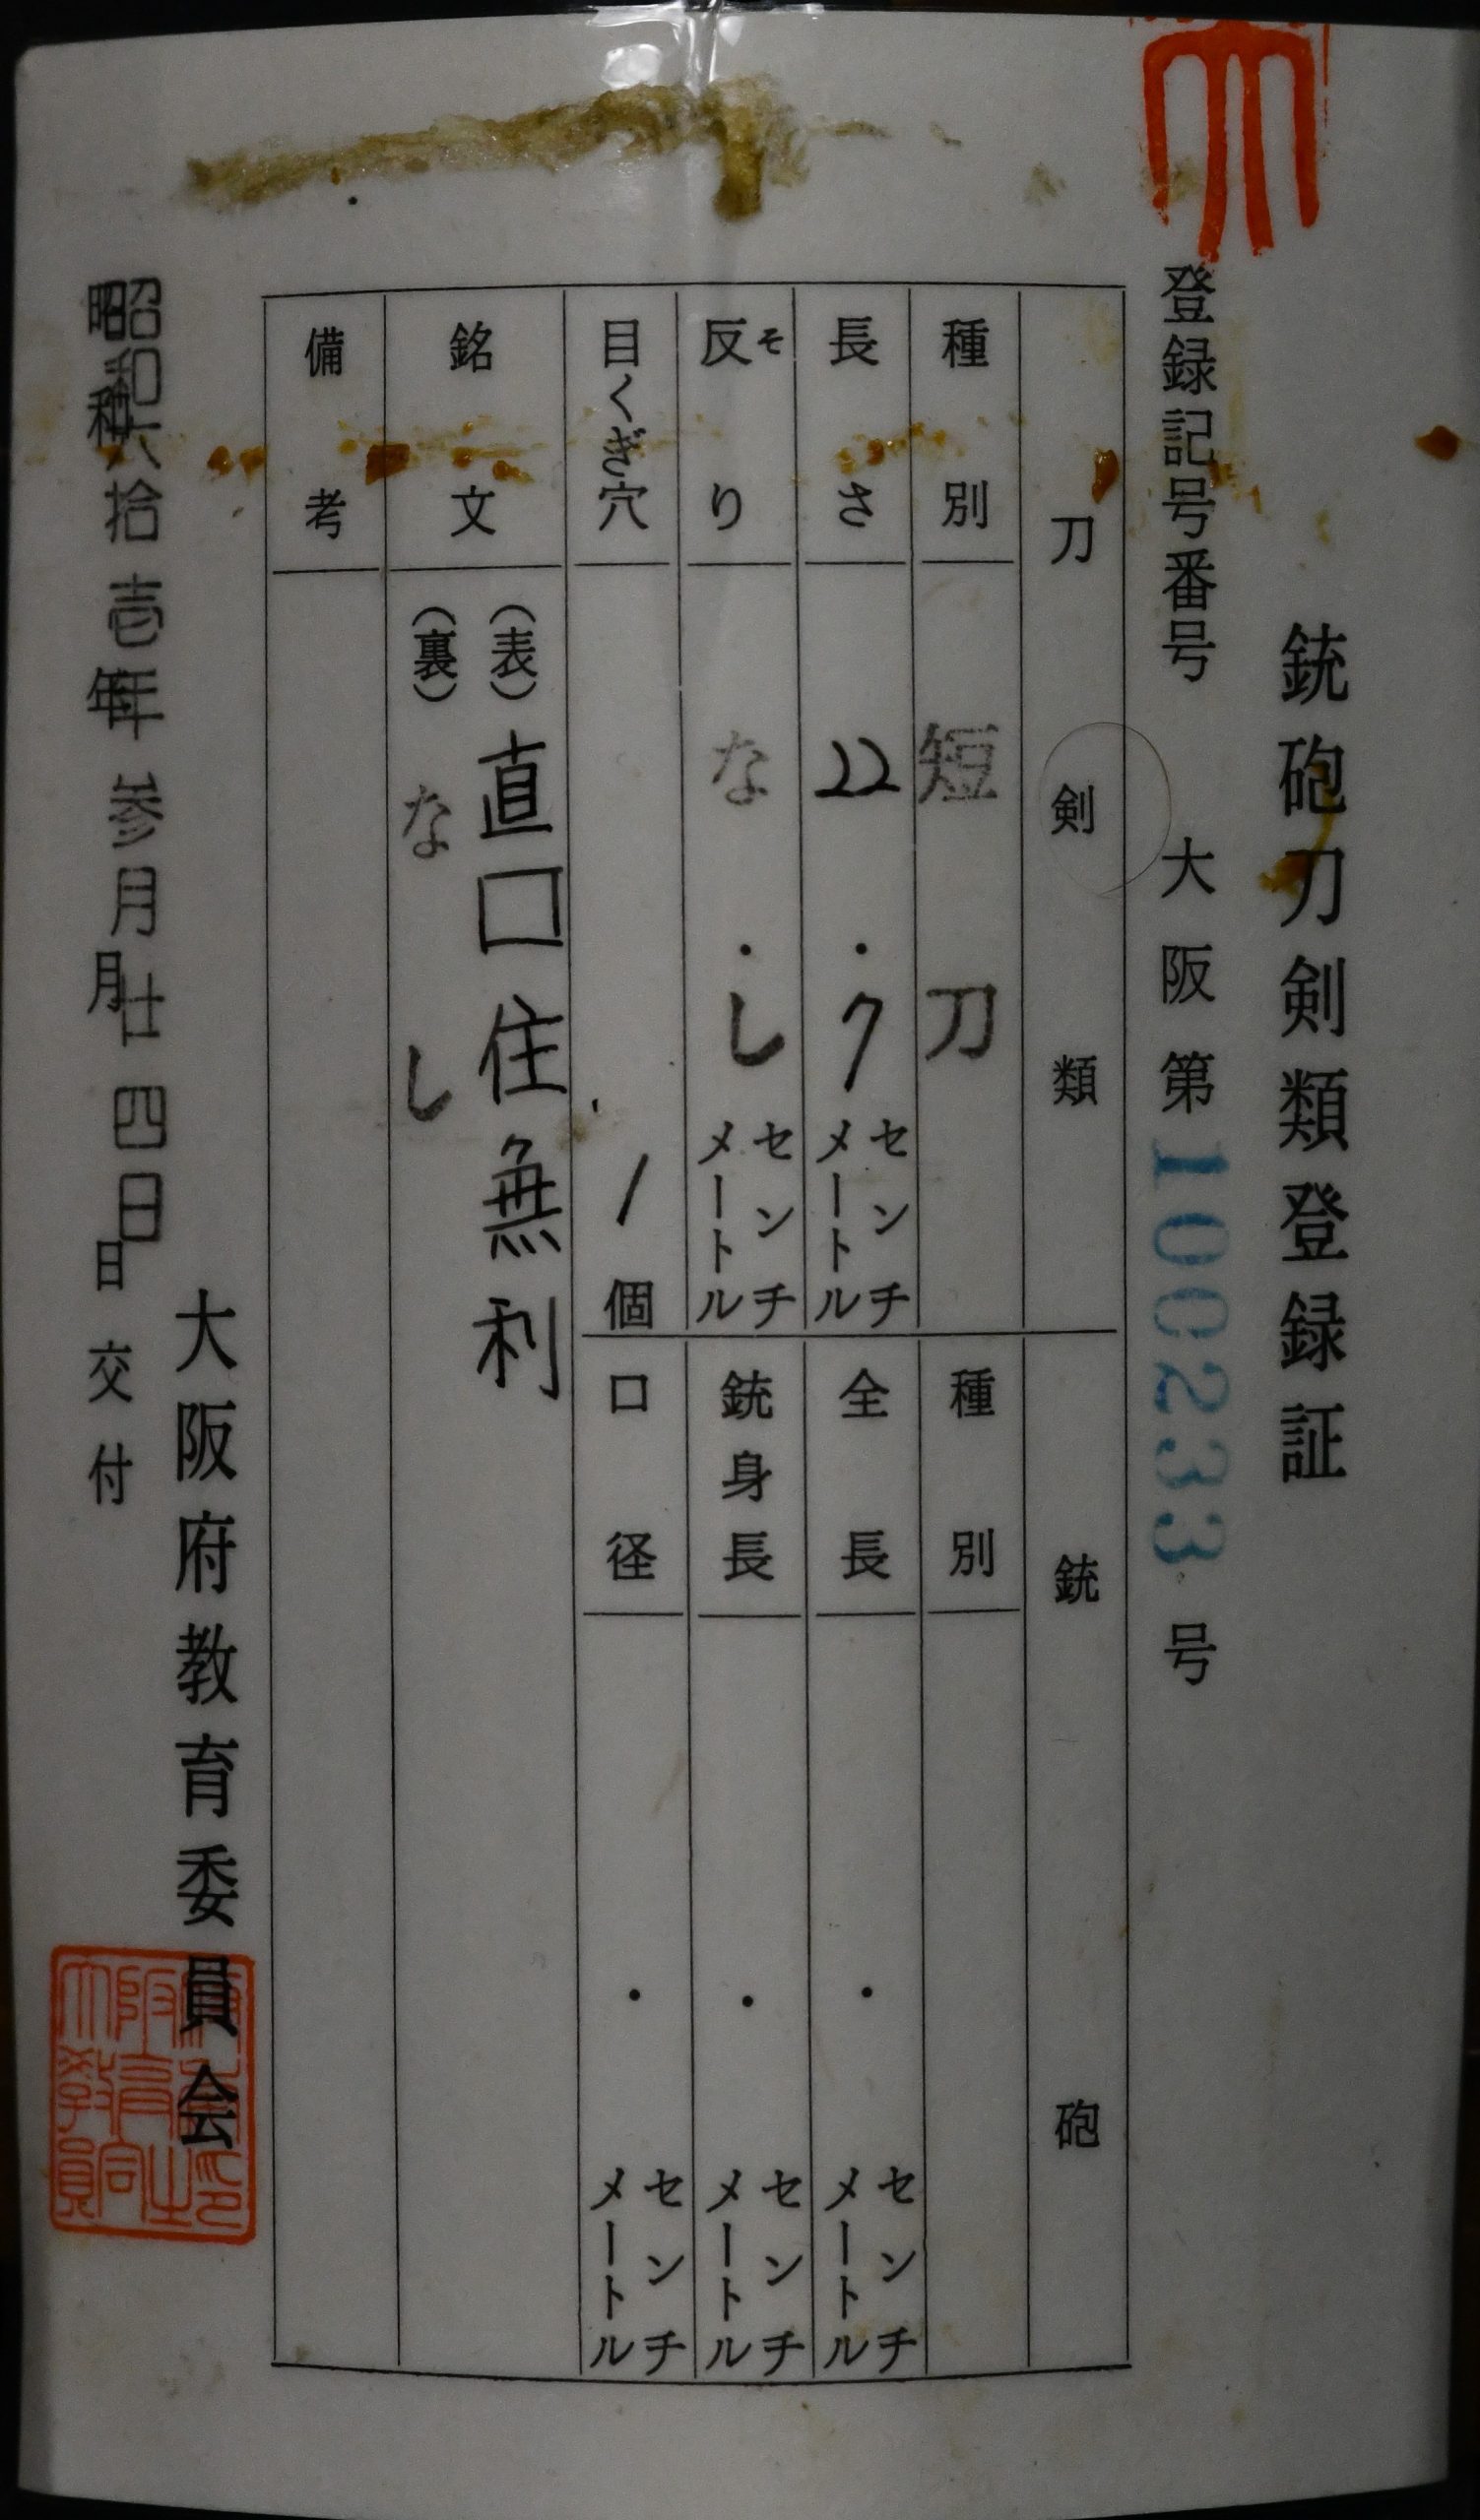 銃砲刀剣類登録証
登録記号番号 大阪第100233号
刀剣類
種別 短刀
長さ 22.7センチメートル
反り そ なし . センチメートル
目くぎ穴 1個
銃砲
種別
全長 . センチメートル
銃身長 . センチメートル
口径 . センチメートル
銘文 (表) 直口住無利
(裏) なし
備考
昭和六拾壱年参月廿四日
昭和 年 月 日 交付
大阪府教育委員会